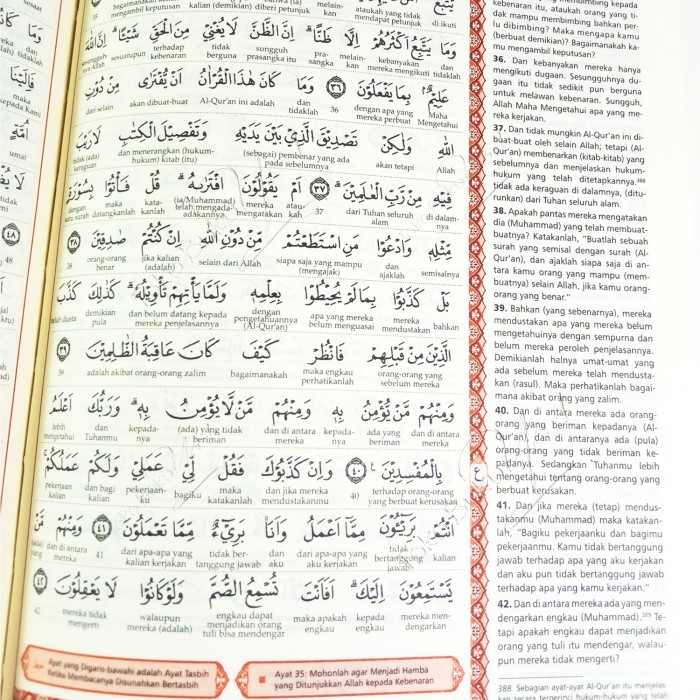 وَمَا يَتَّبِعُ اَكْثَرُهُمْ اِلَّا ظَنًّاۗ اِنَّ الظَّنَّ لَا يُغْنِيْ مِنَ الْحَقِّ شَيْـًٔاۗ اِنَّ اللّٰهَ
عَلِيْمٌۢ بِمَا يَفْعَلُوْنَ ٣٦ وَمَا كَانَ هٰذَا الْقُرْاٰنُ اَنْ يُّفْتَرٰى مِنْ دُوْنِ
Maha Mengetahui dengan apa yang mereka perbuat 36 dan tidaklah Al-Qur'an ini adalah akan dibuat-buat dari selain
اللّٰهِ وَلٰكِنْ تَصْدِيْقَ الَّذِيْ بَيْنَ يَدَيْهِ وَتَفْصِيْلَ الْكِتٰبِ لَا رَيْبَ
Allah akan tetapi (sebagai) pembenar yang ada pada sebelumnya dan menerangkan (hukum-hukum) kitab (itu) tidak (ada) keraguan
فِيْهِ مِنْ رَّبِّ الْعٰلَمِيْنَ ٣٧ اَمْ يَقُوْلُوْنَ افْتَرٰىهُۗ قُلْ فَأْتُوْا بِسُوْرَةٍ
di dalam-nya dari Tuhan seluruh alam 37 atau mereka mengatakan (ia/Muhammad) telah mengada-adakannya kata-kanlah maka datangkanlah
مِّثْلِهٖ وَادْعُوْا مَنِ اسْتَطَعْتُمْ مِّنْ دُوْنِ اللّٰهِ اِنْ كُنْتُمْ صٰدِقِيْنَ ٣٨
semisalnya dan ajaklah siapa saja yang mampu (mengajak) selain dari Allah jika kalian (adalah) orang-orang benar 38
بَلْ كَذَّبُوْا بِمَا لَمْ يُحِيْطُوْا بِعِلْمِهٖ وَلَمَّا يَأْتِهِمْ تَأْوِيْلُهٗۗ كَذٰلِكَ كَذَّبَ
bahkan mereka mendustakan apa yang mereka belum menguasai dengan pengetahuannya (Al-Qur'an) dan belum datang kepada mereka penjelasannya demikian pula dusta
الَّذِيْنَ مِنْ قَبْلِهِمْ فَانْظُرْ كَيْفَ كَانَ عَاقِبَةُ الظّٰلِمِيْنَ ٣٩
orang-orang yang sebelum mereka maka engkau perhatikanlah bagaimanakah adalah akibat orang-orang zalim 39
وَمِنْهُمْ مَّنْ يُّؤْمِنُ بِهٖ وَمِنْهُمْ مَّنْ لَّا يُؤْمِنُ بِهٖۗ وَرَبُّكَ اَعْلَمُ
dan di antara mereka ada yang beriman kepada-nya dan di antara mereka (ada) yang tidak beriman kepada-nya dan Tuhanmu lebih mengetahui
بِالْمُفْسِدِيْنَ ٤٠ وَاِنْ كَذَّبُوْكَ فَقُلْ لِّيْ عَمَلِيْ وَلَكُمْ عَمَلُكُمْ
terhadap orang-orang yang berbuat kerusakan 40 dan jika mereka mendustakanmu maka katakanlah bagiku pekerjaan-ku dan bagi kalian pekerjaan kalian
اَنْتُمْ بَرِيْۤـُٔوْنَ مِمَّآ اَعْمَلُ وَاَنَا۠ بَرِيْۤءٌ مِّمَّا تَعْمَلُوْنَ ٤١ وَمِنْهُمْ مَّنْ
kalian tidak bertanggung jawab dari apa-apa yang aku kerjakan dan aku tidak ber-tanggung jawab dari apa-apa yang kalian kerjakan 41 dan di antara mereka
يَّسْتَمِعُوْنَ اِلَيْكَۗ اَفَاَنْتَ تُسْمِعُ الصُّمَّ وَلَوْ كَانُوْا لَا يَعْقِلُوْنَ ٤٢
mereka men-dengarkan kepada engkau maka apakah engkau engkau dapat menjadikan orang tuli bisa mendengar walaupun mereka (adalah) mereka tidak mengerti 42
Ayat yang Digaris-bawahi adalah Ayat Tasbih
Ketika Membacanya Disunahkan Bertasbih
Ayat 35: Mohonlah agar Menjadi Hamba
yang Ditunjukkan Allah kepada Kebenaran
ع
kebenaran itu, ataukah orang yang ti-
dak mampu membimbing bahkan per-
lu dibimbing? Maka mengapa kamu
(berbuat demikian)? Bagaimanakah ka-
mu mengambil keputusan?
36. Dan kebanyakan mereka hanya
mengikuti dugaan. Sesungguhnya du-
gaan itu tidak sedikit pun berguna
untuk melawan kebenaran. Sungguh,
Allah Maha Mengetahui apa yang me-
reka kerjakan.
37. Dan tidak mungkin Al-Qur'an ini di-
buat-buat oleh selain Allah; tetapi (Al-
Qur'an) membenarkan (kitab-kitab) yang
sebelumnya dan menjelaskan hukum-
hukum yang telah ditetapkannya.³⁸⁸
tidak ada keraguan di dalamnya, (ditu-
runkan) dari Tuhan seluruh alam.
38. Apakah pantas mereka mengatakan
dia (Muhammad) yang telah membuat-
buatnya? Katakanlah, "Buatlah sebuah
surah yang semisal dengan surah (Al-
Qur'an), dan ajaklah siapa saja di an-
tara kamu orang yang mampu (mem-
buatnya) selain Allah, jika kamu orang-
orang yang benar."
39. Bahkan (yang sebenarnya), mereka
mendustakan apa yang mereka belum
mengetahuinya dengan sempurna dan
belum mereka peroleh penjelasannya.
Demikianlah halnya umat-umat yang
ada sebelum mereka telah mendusta-
kan (rasul). Maka perhatikanlah bagai-
mana akibat orang yang zalim.
40. Dan di antara mereka ada orang-
orang yang beriman kepadanya (Al-
Qur'an), dan di antaranya ada (pula)
orang-orang yang tidak beriman ke-
padanya. Sedangkan Tuhanmu lebih
mengetahui tentang orang-orang yang
berbuat kerusakan.
41. Dan jika mereka (tetap) mendus-
takanmu (Muhammad) maka katakan-
lah, "Bagiku pekerjaanku dan bagimu
pekerjaanmu. Kamu tidak bertanggung
jawab terhadap apa yang aku kerjakan
dan aku pun tidak bertanggung jawab
terhadap apa yang kamu kerjakan."
42. Dan di antara mereka ada yang men-
dengarkan engkau (Muhammad).³⁸⁹ Te-
tapi apakah engkau dapat menjadikan
orang yang tuli itu mendengar, walau-
pun mereka tidak mengerti?
388. Sebagian ayat-ayat Al-Qur'an itu menjelas-